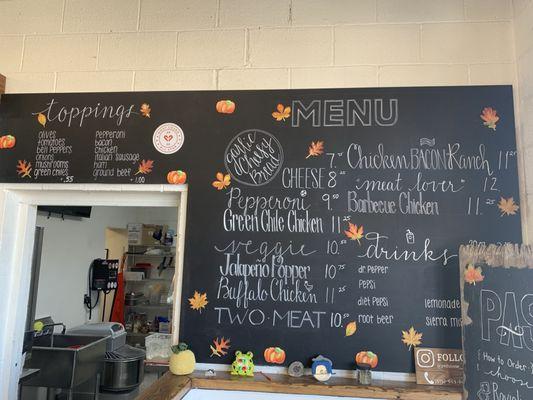 toppings
olives
tomatoes
bell peppers
onions
mushrooms
green chiles
.55
pepperoni
bacon
chicken
italian sausage
ham
ground beef
1.00
MENU
garlic
cheesy
bread
7.
CHEESE 8.
Pepperoni 9.
Green Chile Chicken 11.
veggie 10.
Jalapeño Popper 10.
Buffalo Chicken 11.
TWO-MEAT 10.
Chicken BACON Ranch 11.
"meat lover" 12.
Barbecue Chicken 11.
Drinks
dr. pepper
pepsi
diet pepsi
root beer
lemonade
sierra mis
PAS
How to Order:
choose
Ravioli
FOLLO